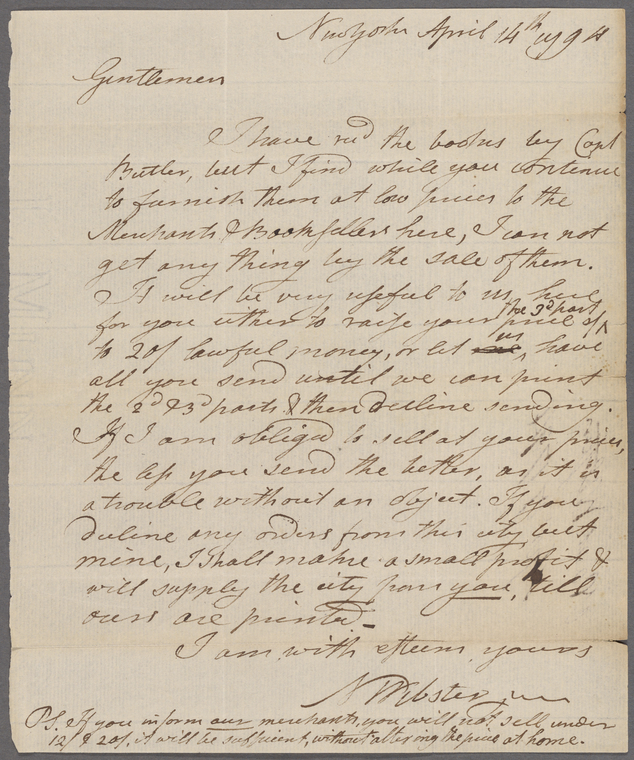 New York April 14th 1794
Gentlemen
I have recd the books by Capt
Butler, but I find while you continue
to furnish them at low prices to the
Merchants & Booksellers here, I can not
get any thing by the sale of them.
It will be very useful to us here
for you either to raise your price of
the 3d part
to 20/ lawful money, or let us have
all you send until we can print
the 2d & 3d parts & then decline sending.
If I am obliged to sell at your prices,
the less you send the better, as it is
a trouble without an object. If you
decline any orders from this city but
mine, I shall make a small profit &
will supply the city from you, till
ours are printed.
I am with esteem yours
N Webster jun
PS. If you inform our merchants, you will not sell under
12/ & 20/. it will be sufficient, without altering the price at home.